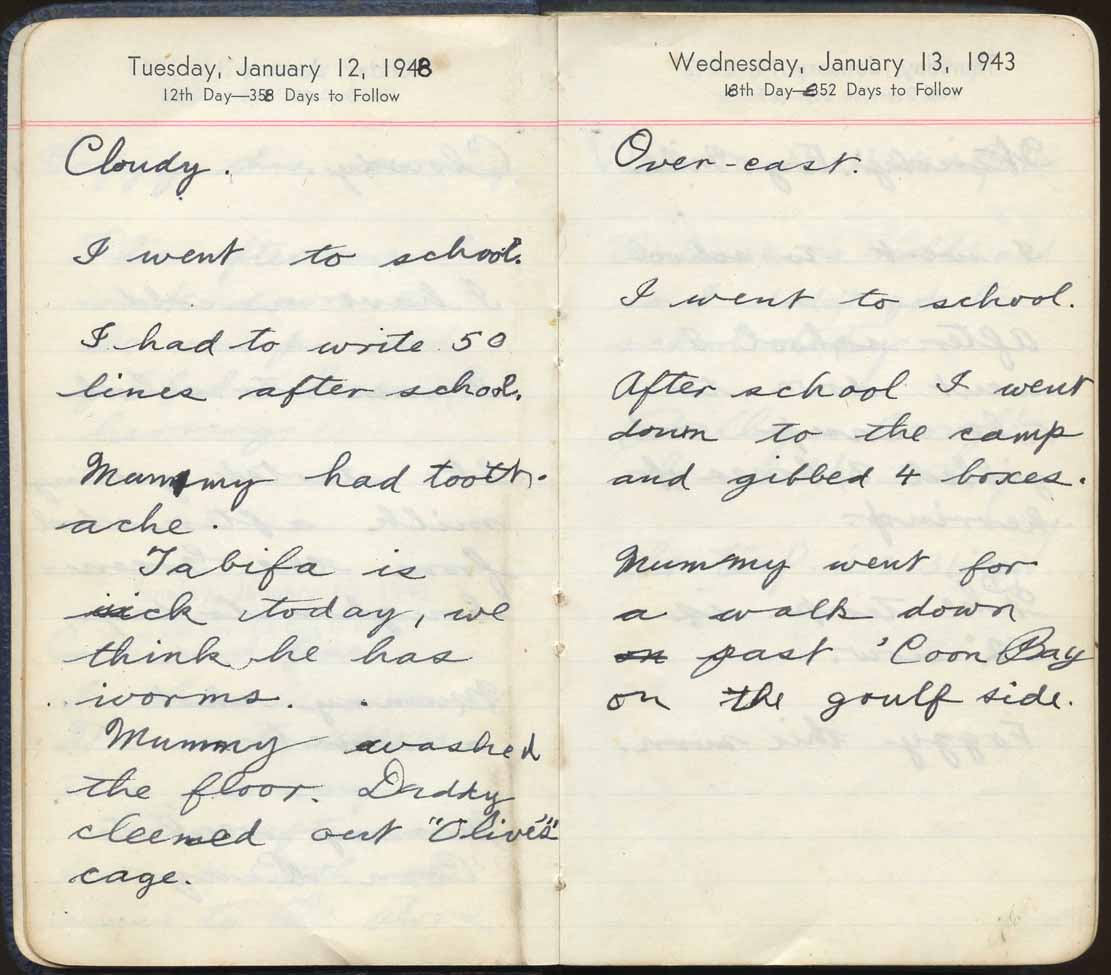 Tuesday, January 12, 1948
12th Day—358 Days to Follow
Cloudy.
I went to school.
I had to write 50
lines after school.
Mummy had tooth-
ache.
Tabifa is
sick today, we
think he has
worms.
Mummy washed
the floor. Daddy
cleened out "Olive's"
cage.
Wednesday, January 13, 1943
13th Day—352 Days to Follow
Over-cast.
I went to school.
After school I went
down to the camp
and gibbed 4 boxes.
Mummy went for
a walk down
on past 'Coon Bay
on the goulf side.